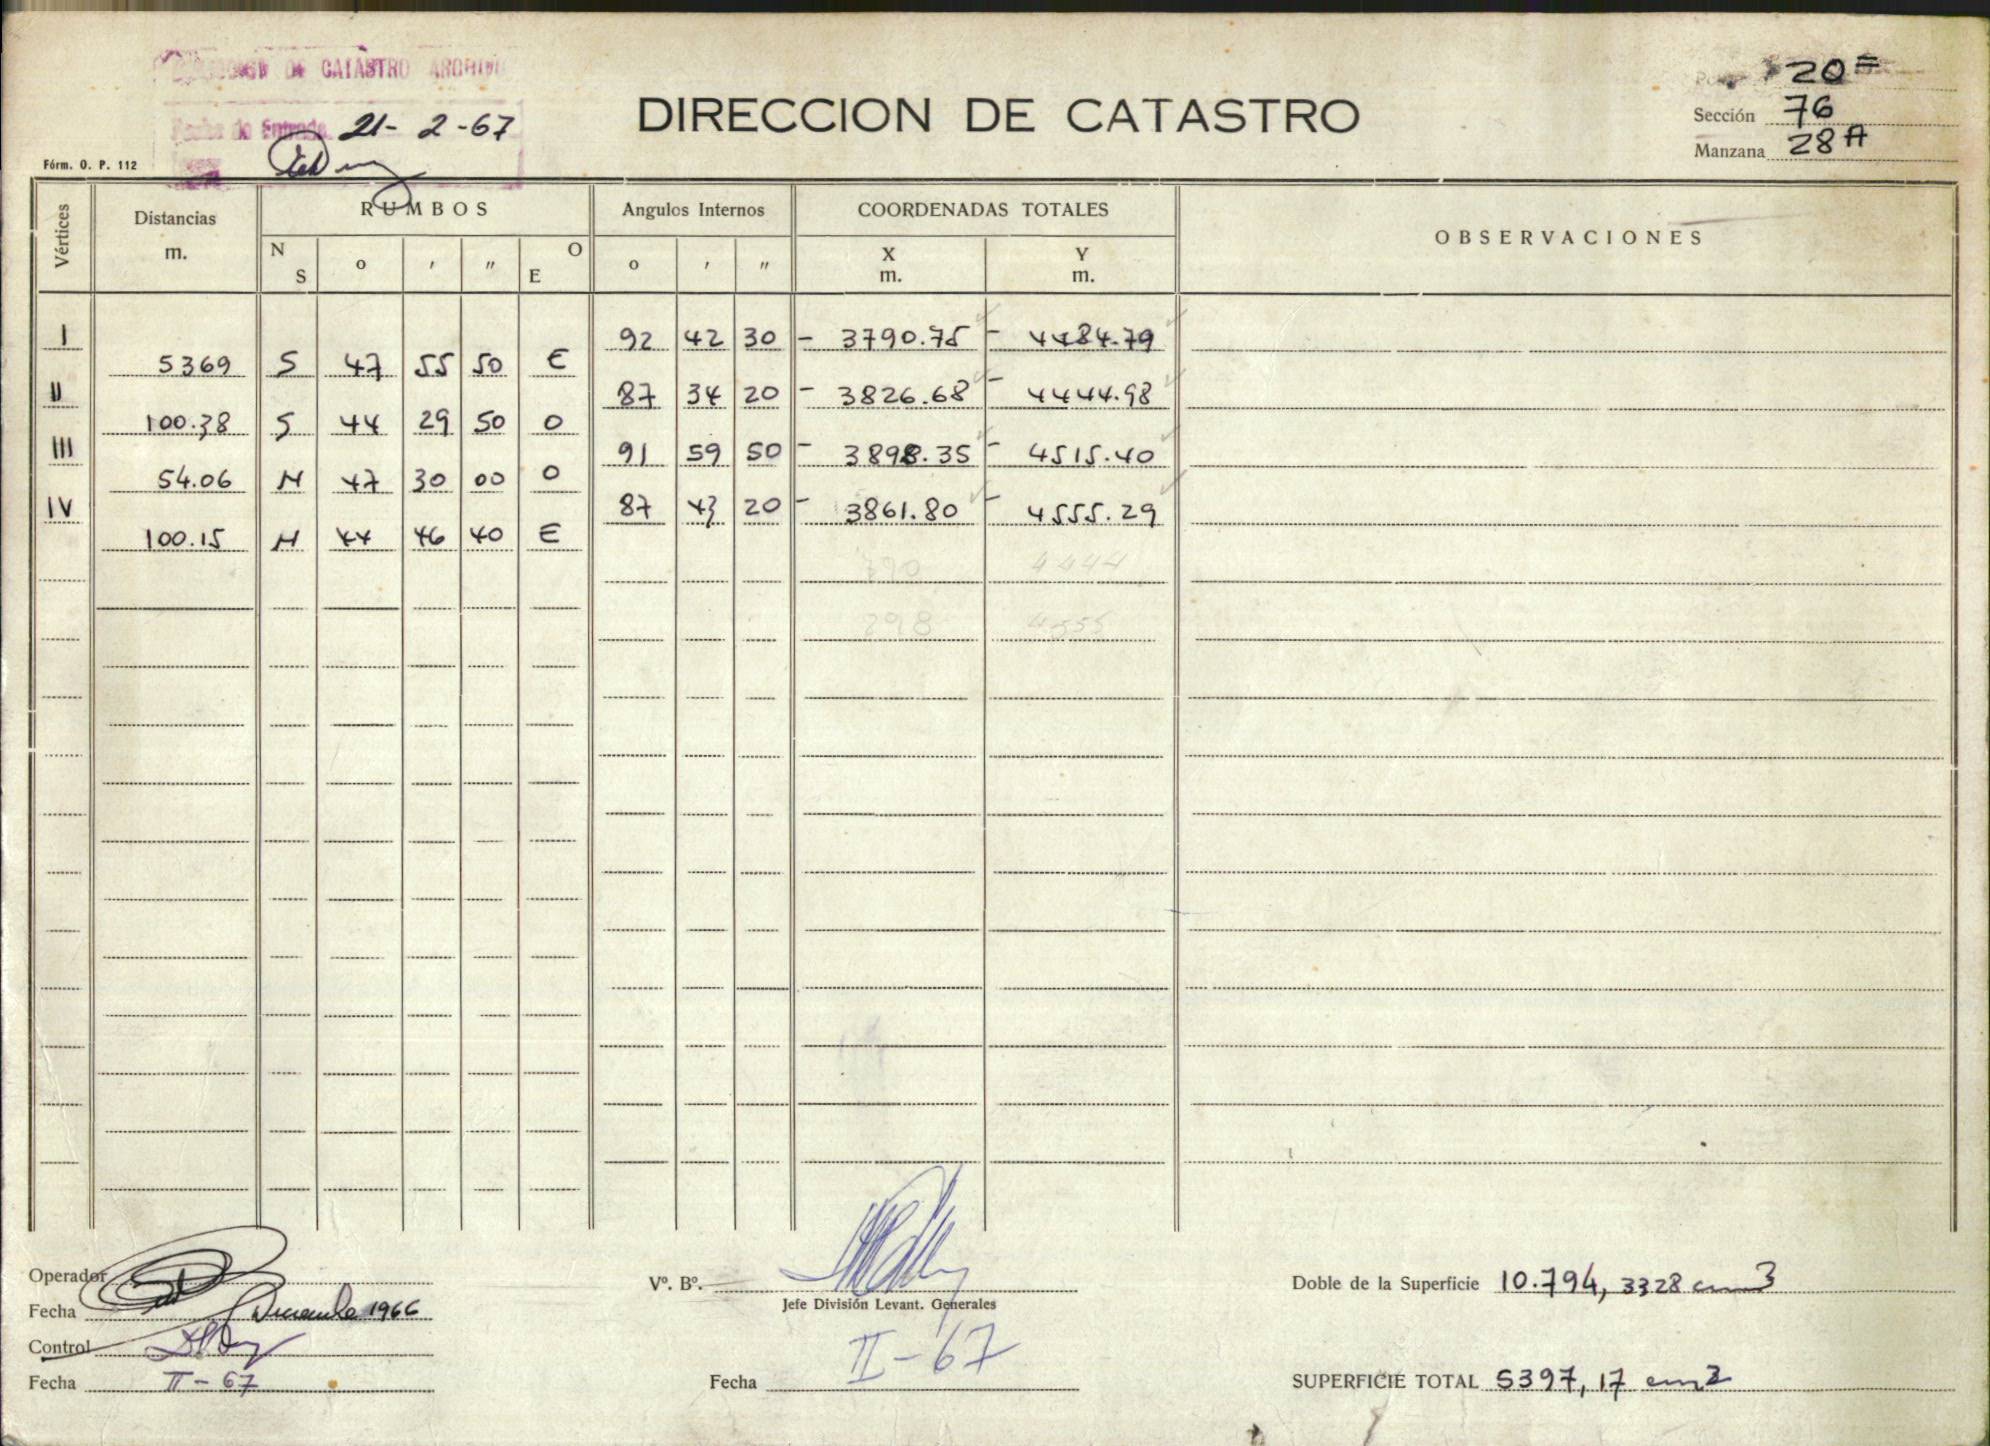 DE CATASTRO ARCHIVO
Fecha de Entrada 21- 2 -67
20=
DIRECCION DE CATASTRO
Sección 76
Manzana 28A
Fórm. O. P. 112
Vértices
Distancias m.
RUMBOS
Angulos Internos
COORDENADAS TOTALES
OBSERVACIONES
N S o ' " O E
o ' "
X m.
Y m.
I 92 42 30 - 3790.75 - 4484.79
5369 S 47 55 50 E
II 87 34 20 - 3826.68 - 4444.98
100.38 S 44 29 50 O
III 91 59 50 - 3898.35 - 4515.40
54.06 N 47 30 00 O
IV 87 43 20 - 3861.80 - 4555.29
100.15 N 44 46 40 E
790 4444
898 4555
Operador
Fecha Diciembre 1966
Control
Fecha II - 67
Vº. Bº.
Jefe División Levant. Generales
Fecha II - 67
Doble de la Superficie 10.794, 3328
SUPERFICIE TOTAL 5397, 17